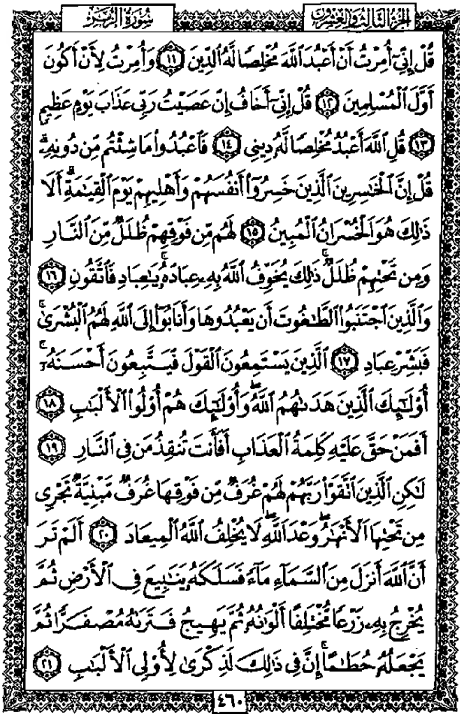 سُورَةُ الزُّمَرِ الجُزْءُ الثَّالِثُ وَالعِشْرُونَ
قُلْ إِنِّىٓ أُمِرْتُ أَنْ أَعْبُدَ ٱللَّهَ مُخْلِصًا لَّهُ ٱلدِّينَ ١١ وَأُمِرْتُ لِأَنْ أَكُونَ
أَوَّلَ ٱلْمُسْلِمِينَ ١٢ قُلْ إِنِّىٓ أَخَافُ إِنْ عَصَيْتُ رَبِّى عَذَابَ يَوْمٍ عَظِيمٍ
١٣ قُلِ ٱللَّهَ أَعْبُدُ مُخْلِصًا لَّهُۥ دِينِى ١٤ فَٱعْبُدُوا۟ مَا شِئْتُم مِّن دُونِهِۦۗ
قُلْ إِنَّ ٱلْخَٰسِرِينَ ٱلَّذِينَ خَسِرُوٓا۟ أَنفُسَهُمْ وَأَهْلِيهِمْ يَوْمَ ٱلْقِيَٰمَةِۗ أَلَا
ذَٰلِكَ هُوَ ٱلْخُسْرَانُ ٱلْمُبِينُ ١٥ لَهُم مِّن فَوْقِهِمْ ظُلَلٌ مِّنَ ٱلنَّارِ
وَمِن تَحْتِهِمْ ظُلَلٌۚ ذَٰلِكَ يُخَوِّفُ ٱللَّهُ بِهِۦ عِبَادَهُۥۚ يَٰعِبَادِ فَٱتَّقُونِ ١٦
وَٱلَّذِينَ ٱجْتَنَبُوا۟ ٱلطَّٰغُوتَ أَن يَعْبُدُوهَا وَأَنَابُوٓا۟ إِلَى ٱللَّهِ لَهُمُ ٱلْبُشْرَىٰۚ
فَبَشِّرْ عِبَادِ ١٧ ٱلَّذِينَ يَسْتَمِعُونَ ٱلْقَوْلَ فَيَتَّبِعُونَ أَحْسَنَهُۥٓۚ
أُو۟لَٰٓئِكَ ٱلَّذِينَ هَدَىٰهُمُ ٱللَّهُۖ وَأُو۟لَٰٓئِكَ هُمْ أُو۟لُوا۟ ٱلْأَلْبَٰبِ ١٨
أَفَمَنْ حَقَّ عَلَيْهِ كَلِمَةُ ٱلْعَذَابِ أَفَأَنتَ تُنقِذُ مَن فِى ٱلنَّارِ ١٩
لَٰكِنِ ٱلَّذِينَ ٱتَّقَوْا۟ رَبَّهُمْ لَهُمْ غُرَفٌ مِّن فَوْقِهَا غُرَفٌ مَّبْنِيَّةٌ تَجْرِى
مِن تَحْتِهَا ٱلْأَنْهَٰرُۖ وَعْدَ ٱللَّهِۖ لَا يُخْلِفُ ٱللَّهُ ٱلْمِيعَادَ ٢٠ أَلَمْ تَرَ
أَنَّ ٱللَّهَ أَنزَلَ مِنَ ٱلسَّمَآءِ مَآءً فَسَلَكَهُۥ يَنَٰبِيعَ فِى ٱلْأَرْضِ ثُمَّ
يُخْرِجُ بِهِۦ زَرْعًا مُّخْتَلِفًا أَلْوَٰنُهُۥ ثُمَّ يَهِيجُ فَتَرَىٰهُ مُصْفَرًّا ثُمَّ
يَجْعَلُهُۥ حُطَٰمًاۚ إِنَّ فِى ذَٰلِكَ لَذِكْرَىٰ لِأُو۟لِى ٱلْأَلْبَٰبِ ٢١
٤٦٠